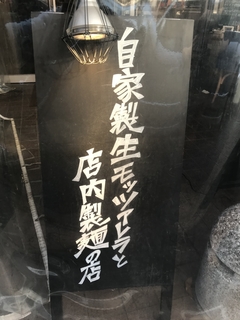 自家製生モッツァレラと
店内製麺の店